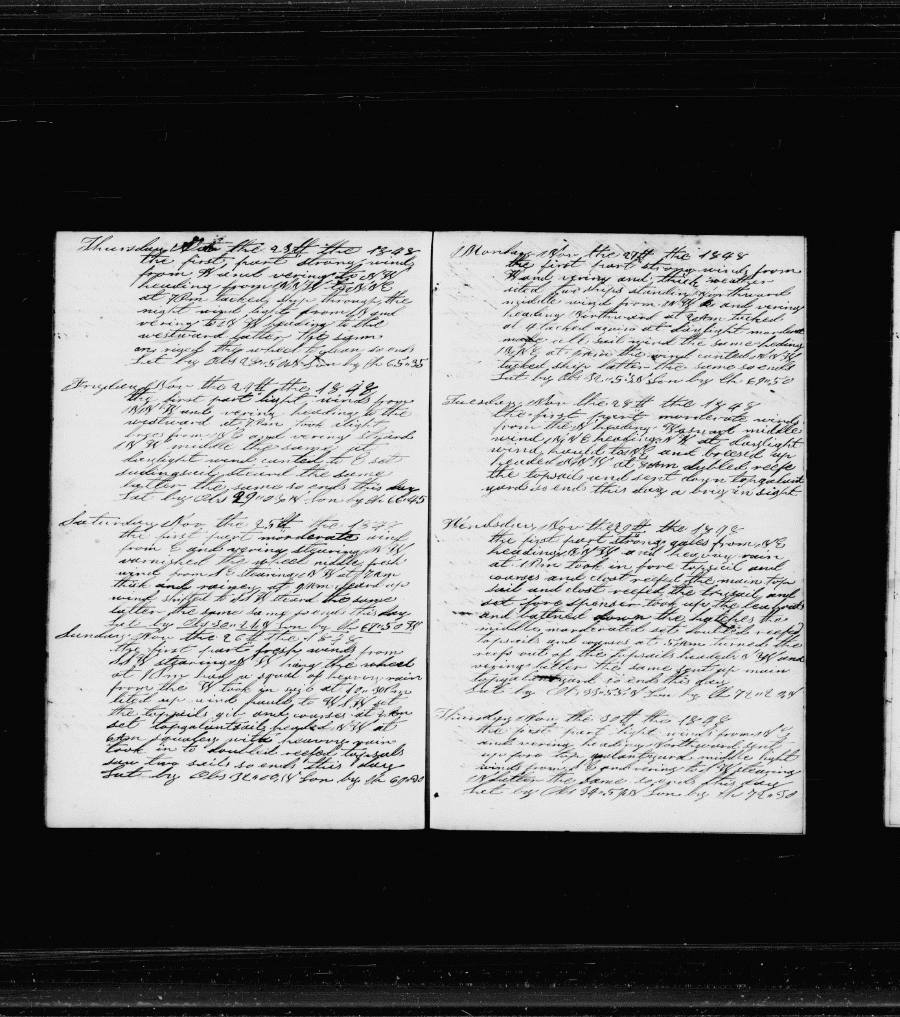 Thursday Nov the 23th the 1848
the first part strong wind
from W and vering to NW
heading from NNW to NNE
at 7 Pm tacked ship through the
night wind light from N and
vering to NW heading to the
westward latter the same
on rigin the wheel so ends
Lat by Obs Lon by Ch 65=35
Fryday Nov the 24th the 1848
the first part light winds from
NNW and vering heading to the
westward at 7 Pm took
from NE and vering
NW middle the same at
daylight wind canted to E set
studingsail stecred the same
latter the same so ends this day
Lat by Obs 29=03N Lon by Ch 66=45
Saturday Nov the 25th the 1848
the first part morderate wind
from E and vering stearing NW
varnished the wheel middle fresh
wind from SE stearing NW at 7 Am
thick and rainey at 9 Am cleard up
wind shifted to SW steard the same
latter the same so ends this day
Lat by Obs 30=26N Lon by Ch 67=50
Sunday Nov the 26th the 1848
the first part fresh winds from
SW stearing NW hung the wheel
at 10 Pm had a squal of heavey rain
from the W took in
lited up wind hauld to WSW set
the topsails gib and courses at
set topgalantsails headed NW at
6 Am squaley with heavey rain
took in to doubled reefed topsails
saw two sails so ends this day
Lat by Obs 32=00N Lon by Ch 69=20
Monday Nov the 27th the 1848
the first part strong winds from
W and vering and thick weather
ship standing Northward
middle wind from and vering
heading Northward at 2 Am tacked
at 4 tacked again at daylight morderate
made all sail wind the same heding
NNE at wind canted NNW
tacked ship latter the same so ends
Lat by Ob Lon by Ch 69=50
Tuesday Nov the 28th the 1848
the first part morderate winds
from the N heading middle
wind NNE heading NW at daylight
wind hauld to NE and breesed up
headed NNW at 8 Am dubled reefe
the topsails and sent down topgalant
yards so ends this day a brig in sight
Wendsday Nov the 29th the 1848
the first part strong gales from NE
heading NNW and heavey rain
at 1 Pm took in fore topsail and
courses and clost reefed the main top
sail and clost reefed the trysail and
set fore spenser took up the
and battened down the hatches the
middle morderated set doubled reefed
topsails and courses at 5 Am turned the
reefs out of the topsails headed NW and
vering latter the same sent up main
topgalantyard so ends this day
Lat by Ob 33=55N Lon by Ch 72=24
Thursday Nov the 30th the 1848
the first part light winds from NE
and vering heading Northward sent
up fore topgalantyard middle light
winds from SE and vering to SW stearing
N latter the same so ends this day
Lat by Obs 34=54N Lon by Ch 72=30